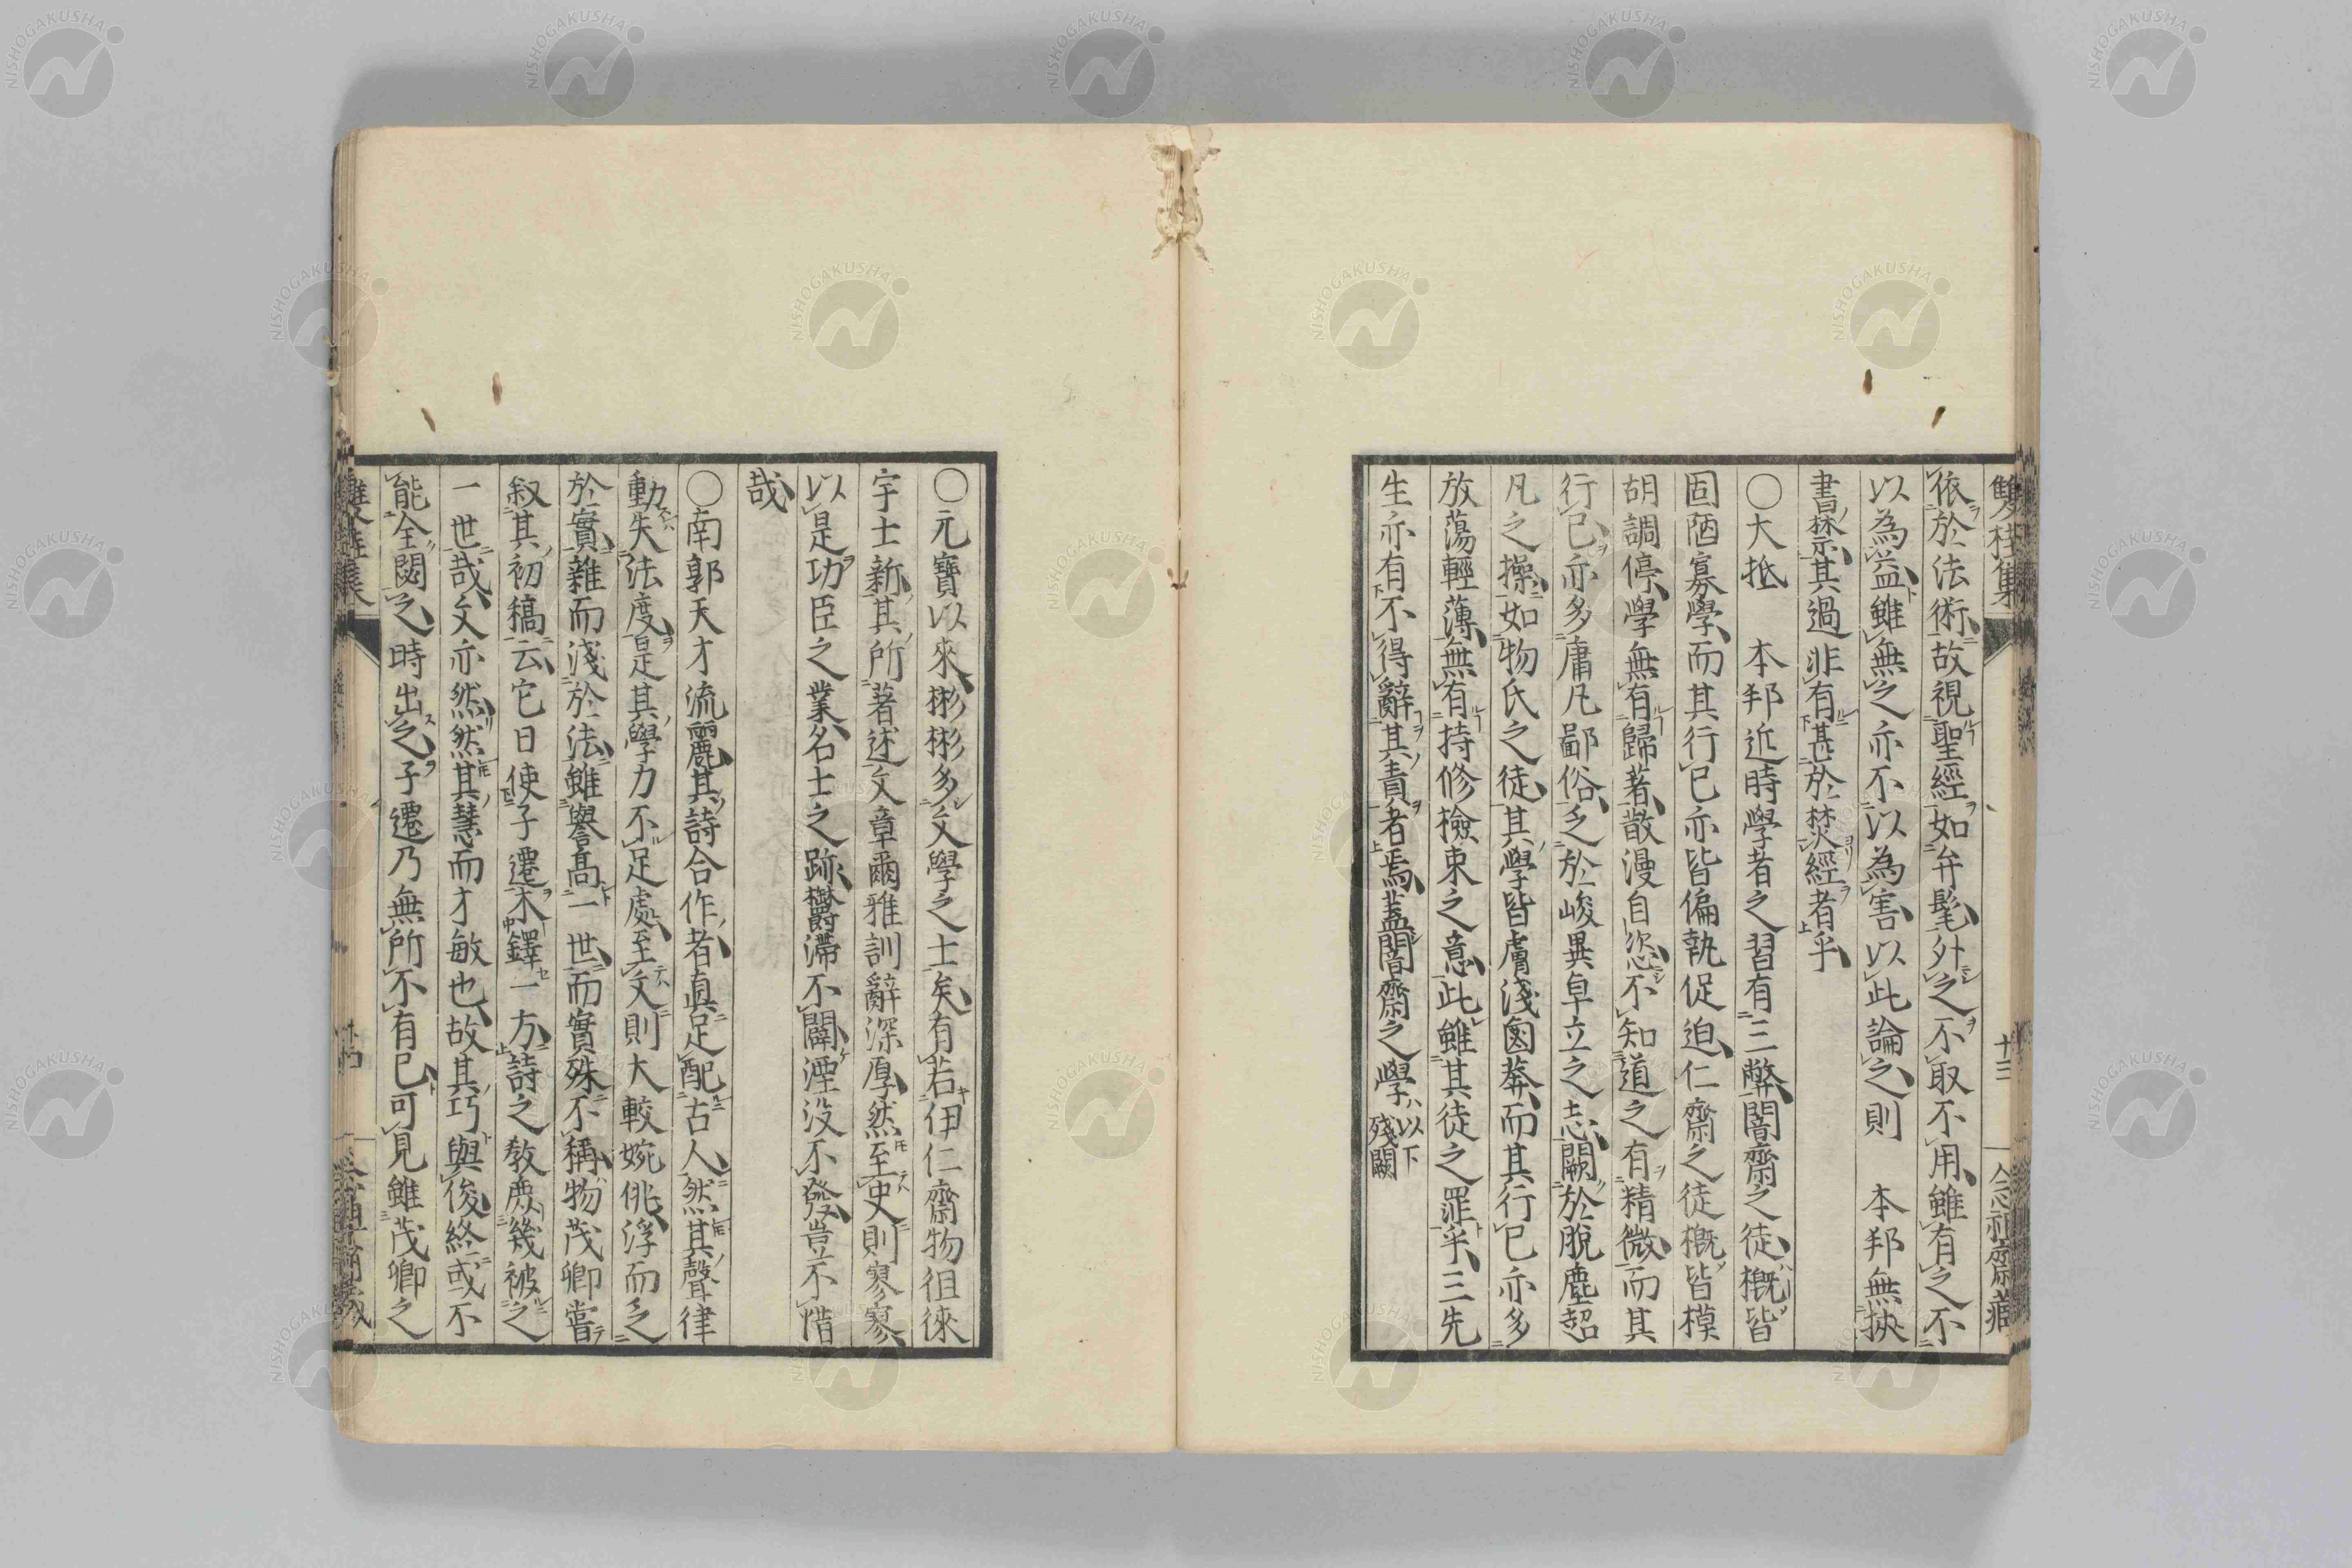 雙桂集 十三 念祖齋藏
依於法術故視聖經如弁髦外之不取不用雖有之不
以為益雖無之亦不以為害以此論之則 本邦無挾
書禁其過非有甚於焚經者乎
○大抵 本邦近時學者之習有三弊闇齋之徒概皆
固陋寡學而其行已亦皆偏執促迫仁齋之徒概皆模
胡調停學無有歸著散漫自恣不知道之有精微而其
行已亦多庸凡鄙俗乏於峻異卓立之志闕於脫塵超
凡之操如物氏之徒其學皆膚淺鹵莽而其行已亦多
放蕩輕薄無有持修檢束之意此雖其徒之罪乎三先
生亦有不得辭其責者焉蓋闇齋之學 以下殘闕
○元寶以來彬彬多文學之士矣有若伊仁齋物徂徠
宇士新其所著述文章爾雅訓辭深厚然至史則寥寥
以是功臣之業名士之跡欝滯不闡湮没不發豈不惜
哉
○南郭天才流麗其詩合作者真足配古人然其聲律
動失法度是其學力不足處至文則大較婉佻浮而乏
於實雜而淺於法雖譽高一世而實殊不稱物茂卿嘗
叙其初稿云它日使子遷木鐸一方詩之教庶幾被之
一世哉文亦然然其慧而才敏也故其巧與俊終或不
能全閟之時出之子遷乃無所不有已可見雖茂卿之